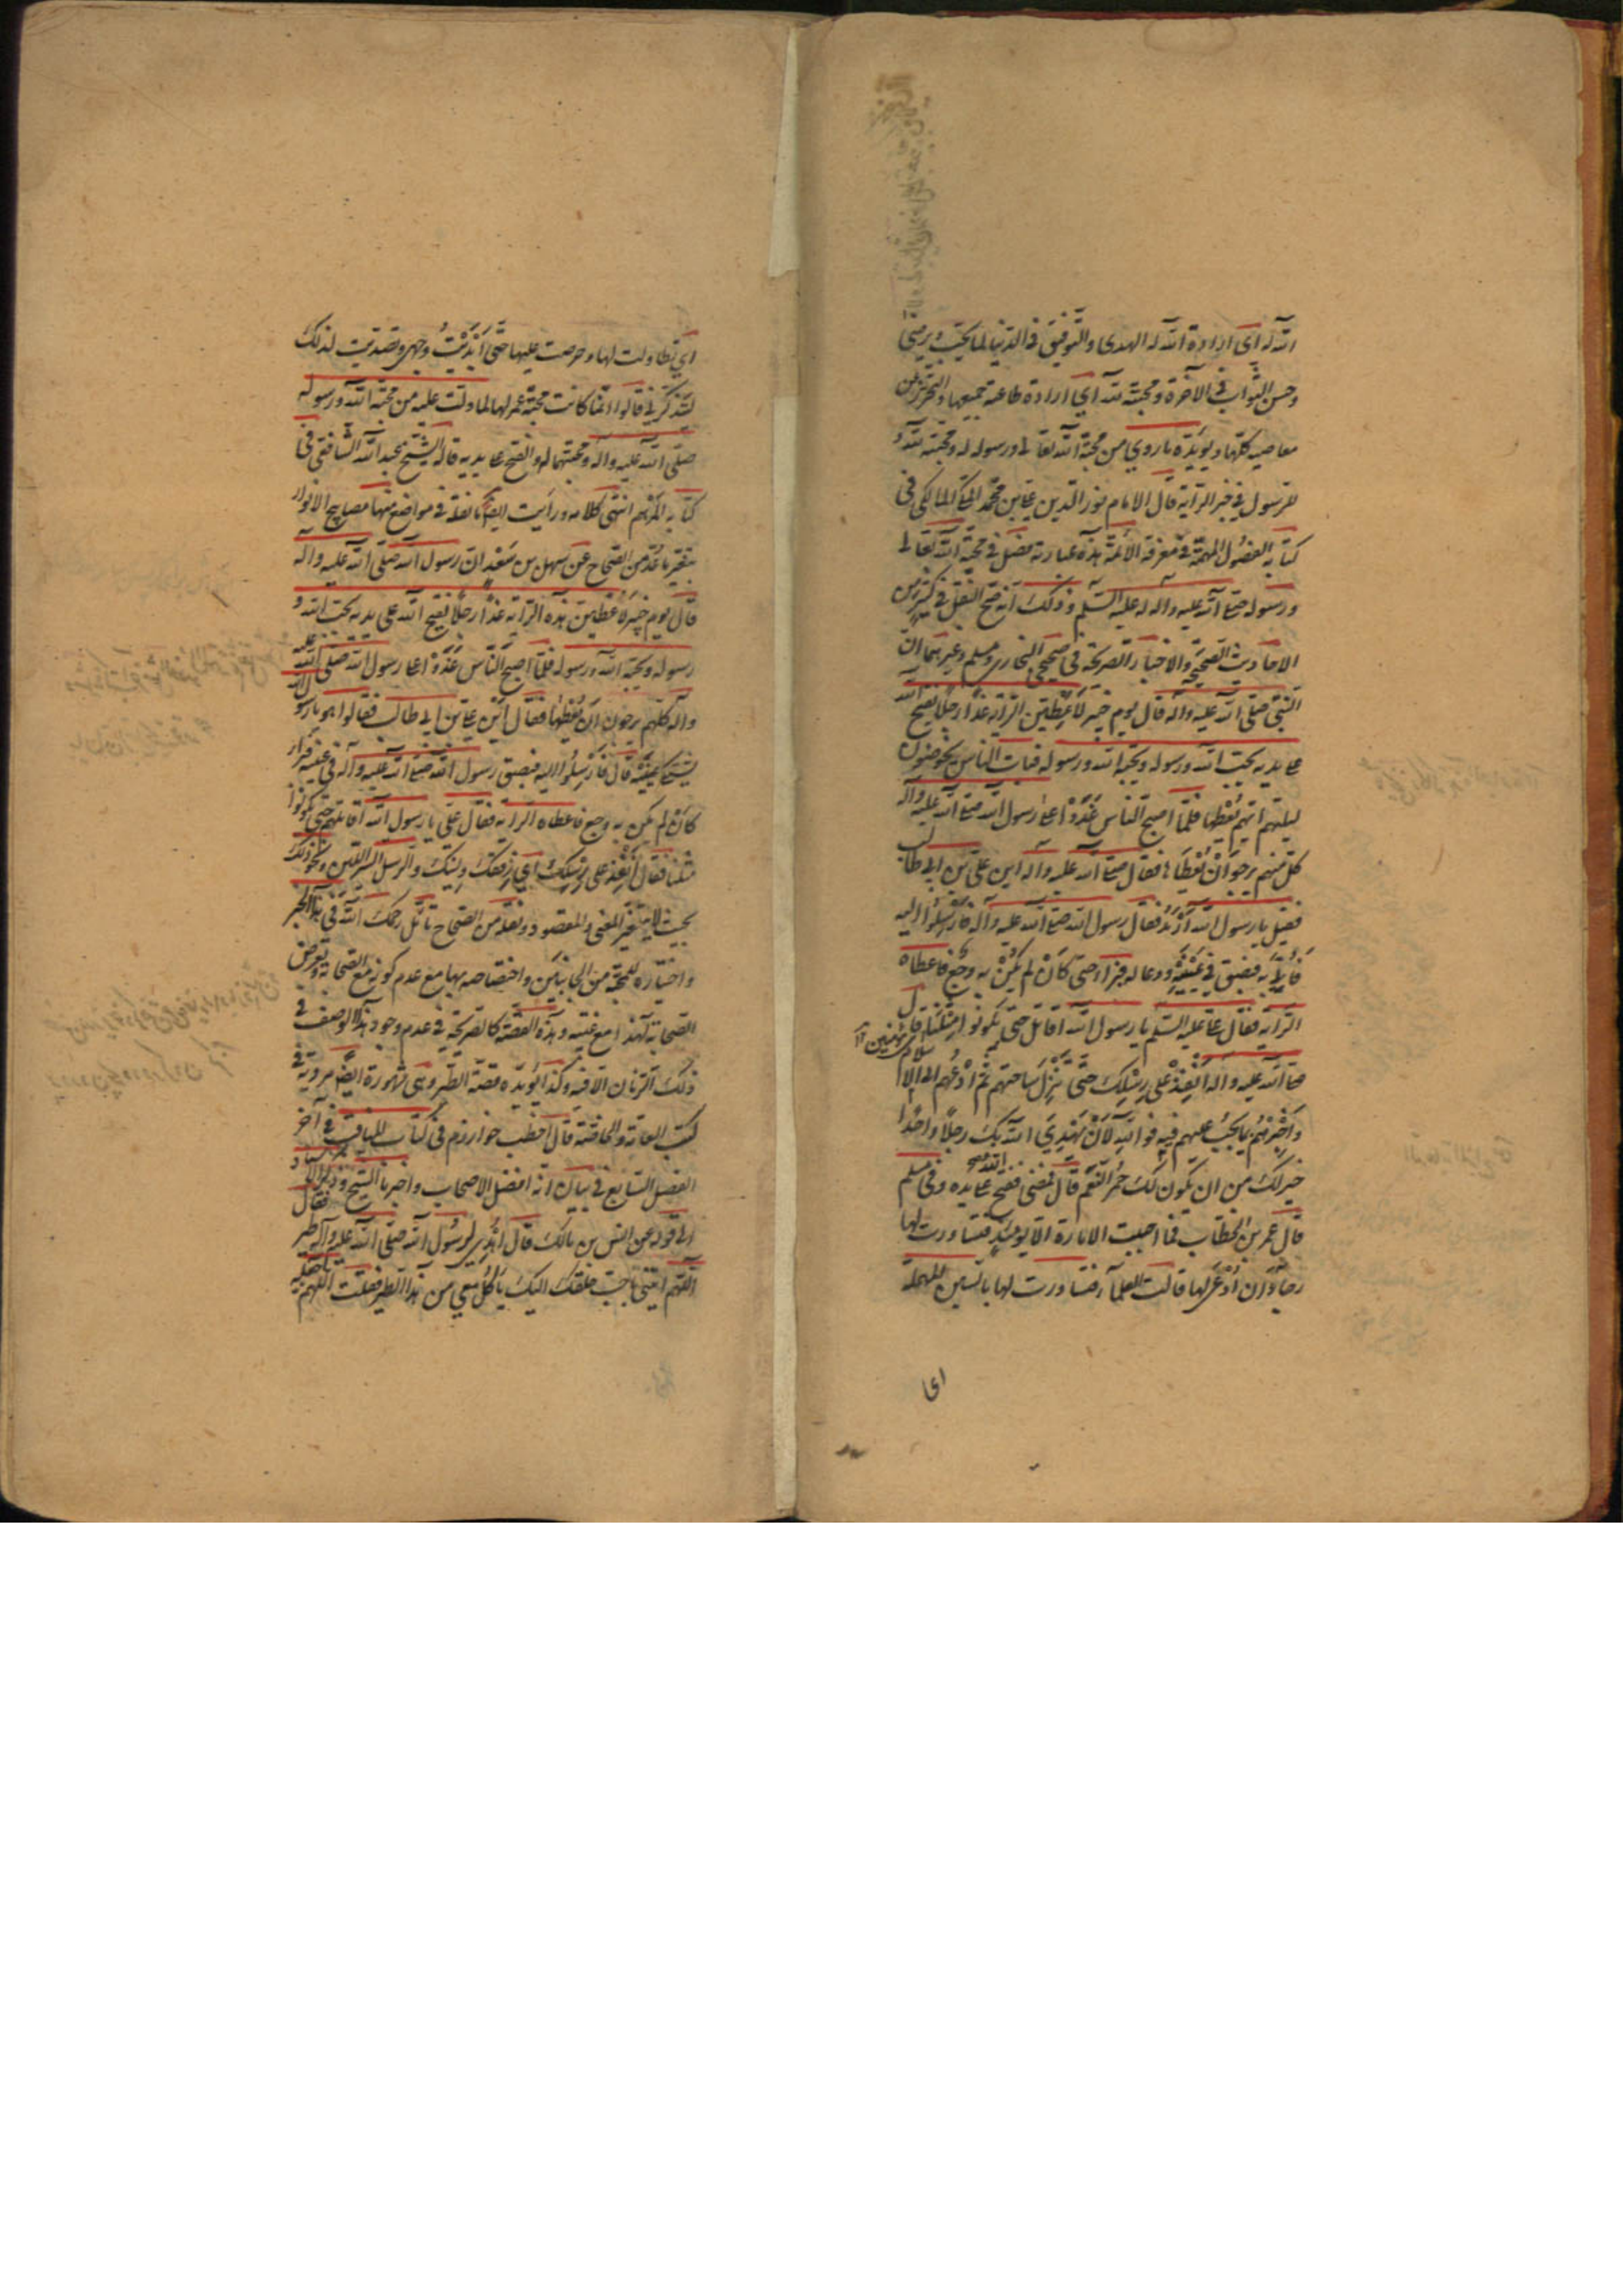 الله له اى ارادة الله له الهدى والتوفيق فى الدنيا لما يحب ويرضى
وحسن الثواب فى الآخرة ومحبته لله اي ارادة طاعته جميعها والتحرز من
معاصيه كلها ويؤيده ما روي من محبة الله تعالى ورسوله له ومحبته لله و
للرسول فى خبر الراية قال الامام نور الدين على بن محمد المكى المالكى فى
كتابه الفصول المهمة فى معرفة الأئمة بهذه عبارته فصل فى محبة الله تعالى
ورسوله صلى الله عليه واله له عليه السلم وذلك انه صح النقل فى كثير من
الاحاديث الصحيحة والاخبار الصريحة فى صحيحى البخارى ومسلم وغيرهما ان
النبى صلى الله عليه واله قال يوم خيبر لاعطين الراية غدا رجلا يفتح الله
على يديه يحب الله ورسوله ويحبه الله ورسوله فبات الناس يخوضون
ليلتهم ايهم يعطيها فلما اصبح الناس غدوا على رسول الله صلى الله عليه واله
كل منهم يرجو ان يعطاها فقال صلى الله عليه واله اين على بن ابى طالب
فقيل يا رسول الله ارمد فقال رسول الله صلى الله عليه واله فارسلوا اليه
فاتى به فبصق فى عينيه ودعا له فبرأ حتى كان لم يكن به وجع فاعطاه
الراية فقال على عليه السلم يا رسول الله اقاتلهم حتى يكونوا مثلنا قال
صلى الله عليه واله انفذ على رسلك حتى تنزل بساحتهم ثم ادعهم الى الاسلام
واخبرهم بما يجب عليهم فيه فوالله لان يهدي الله بك رجلا واحدا
خير لك من ان يكون لك حمر النعم قال فمضى ففتح الله على يده وفى مسلم
قال عمر بن الخطاب فما احببت الامارة الا يومئذ فتساورت لها
رجاء ان ادعى لها قالت العلماء فتساورت لها بالسين المهملة
اى
اي تطاولت لها وحرصت عليها حتى ابديت وجهى وتصديت لذلك
ليتذكرنى قالوا انما كانت محبة عمر لها لما دلت عليه من محبة الله ورسوله
صلى الله عليه واله ومحبتهما له والفتح على يديه قاله الشيخ عبد الله الشافعى فى
كتابه المرهم انتهى كلامه ورأيت ايضا ما نقله فى مواضع منها مصابيح الانوار
عن سهل بن سعد ان رسول الله صلى الله عليه واله
قال يوم خيبر لاعطين هذه الراية غدا رجلا يفتح الله على يديه يحب الله و
رسوله ويحبه الله ورسوله فلما اصبح الناس غدوا على رسول الله صلى الله عليه
واله كلهم يرجون ان يعطيها فقال اين على بن ابى طالب فقالوا هو يا رسول الله
يشتكى عينيه قال فارسلوا اليه فبصق رسول الله صلى الله عليه واله فى عينيه فبرأ
كان لم يكن به وجع فاعطاه الراية فقال على يا رسول الله اقاتلهم حتى يكونوا
مثلنا فقال انفذ على رسلك اي رفقك ولينك والرسل السير اللين ونحو ذلك
بحيث لا يتغير المعنى والمقصود ونقله من الصحاح تأمل رحمك الله فى هذا الخبر
واختياره للمحبة من الجانبين واختصاصه بها مع عدم كونه مع الصحابة وتعرض
الصحابة لهذا مع غيبته وهذه القصة كالصريحة فى عدم وجود هذا الوصف فى
ذلك الزمان الا فيه وكذا يؤيده قصة الطير وهى مشهورة ايضا مروية فى
كتب العامة والخاصة قال اخطب خوارزم فى كتاب المناقب فى آخر
الفصل التاسع فى بيان انه افضل الاصحاب واخبرنا الشيخ وذكر الاسناد
الى قوله عن انس بن مالك قال اهدي لرسول الله صلى الله عليه واله طير فقال
اللهم ائتنى باحب خلقك اليك ياكل معي من هذا الطير فقلت اللهم اجعله